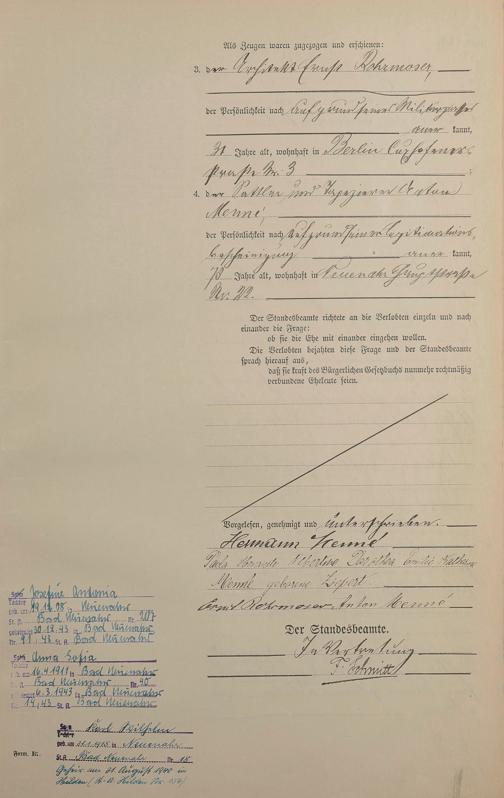 Als Zeugen waren zugezogen und erschienen:
3. der Architekt Ernst Rohrmoser,
der Persönlichkeit nach auf Grund seines Militärpasses
aner kannt,
31 Jahre alt, wohnhaft in Berlin
straße Nr. 3
4. der Sattler und Tapezierer Anton
Menné,
der Persönlichkeit nach auf Grund seiner Legitimations-
bescheinigung aner kannt,
Jahre alt, wohnhaft in Neuenahr Hauptstraße
Nr. 22.
Der Standesbeamte richtete an die Verlobten einzeln und nach
einander die Frage:
ob sie die Ehe mit einander eingehen wollen.
Die Verlobten bejahten diese Frage und der Standesbeamte
sprach hierauf aus,
daß sie kraft des Bürgerlichen Gesetzbuchs nunmehr rechtmäßig
verbundene Eheleute seien.
Vorgelesen, genehmigt und unterschrieben.
Hermann Menné
Albertine Dorothea Emilie
Menné geborene
Ernst Rohrmoser Anton Menné
Der Standesbeamte.
In Vertretung
Schmitt
Josefine Antonia
Tochter
geb. am 19.12.08 in Neuenahr
St. A. Bad Neuenahr Nr.
30.12.43 in Bad Neuenahr
Nr. 43 St. A. Bad Neuenahr
Anna Sofia
16.4.1911 in Bad Neuenahr
Bad Neuenahr Nr. 40
6.3.1943 in Bad Neuenahr
14/43 St. A. Bad Neuenahr
Karl Wilhelm
geb. am 1.1.1915 in Neuenahr
St. A. Bad Neuenahr Nr. 15
Form. Nr.
Geheir. am 31. August 1940 in
Hilden (St. A. Hilden Nr.